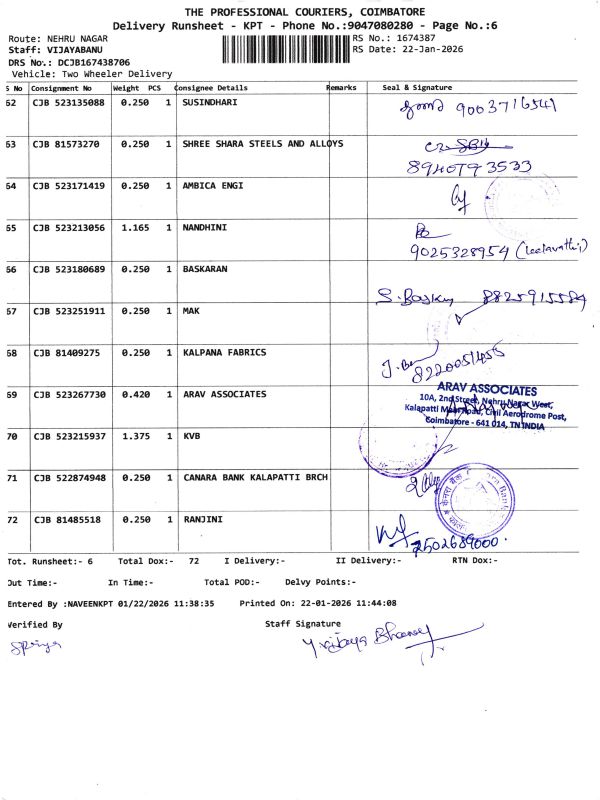 THE PROFESSIONAL COURIERS, COIMBATORE
Delivery Runsheet - KPT - Phone No.:9047080280 - Page No.:6
Route: NEHRU NAGAR RS No.: 1674387
Staff: VIJAYABANU RS Date: 22-Jan-2026
DRS No.: DCJB167438706
Vehicle: Two Wheeler Delivery
S No Consignment No Weight PCS Consignee Details Remarks Seal & Signature
62 CJB 523135088 0.250 1 SUSINDHARI 9003716541
63 CJB 81573270 0.250 1 SHREE SHARA STEELS AND ALLOYS
8940793533
64 CJB 523171419 0.250 1 AMBICA ENGI
65 CJB 523213056 1.165 1 NANDHINI
9025328954 (Leelavathi)
66 CJB 523180689 0.250 1 BASKARAN
S. Basky 8825915584
67 CJB 523251911 0.250 1 MAK
68 CJB 81409275 0.250 1 KALPANA FABRICS
8220051455
69 CJB 523267730 0.420 1 ARAV ASSOCIATES
ARAV ASSOCIATES
10A, 2nd Street, Nehru Nagar West,
Kalapatti Main Road, Civil Aerodrome Post,
Coimbatore - 641 014, TN INDIA
70 CJB 523215937 1.375 1 KVB
71 CJB 522874948 0.250 1 CANARA BANK KALAPATTI BRCH
72 CJB 81485518 0.250 1 RANJINI
2502689000
Tot. Runsheet:- 6 Total Dox:- 72 I Delivery:- II Delivery:- RTN Dox:-
Out Time:- In Time:- Total POD:- Delvy Points:-
Entered By :NAVEENKPT 01/22/2026 11:38:35 Printed On: 22-01-2026 11:44:08
Verified By Staff Signature